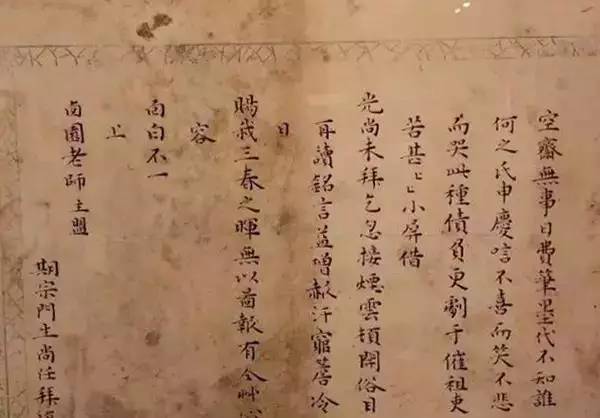 空齋無事日費筆墨代不知誰
何之氏申慶唁不喜而笑不悲
而哭此種債負更劇于催租吏
苦甚〻小屏借
光尚未拜乞忽接煙雲頓開俗目
再讀銘言益增赧汗窮簷冷
日
賜我三春之暉無以啚報有
容
面白不一
上
卣園老師主盟
期宗門生尚任拜